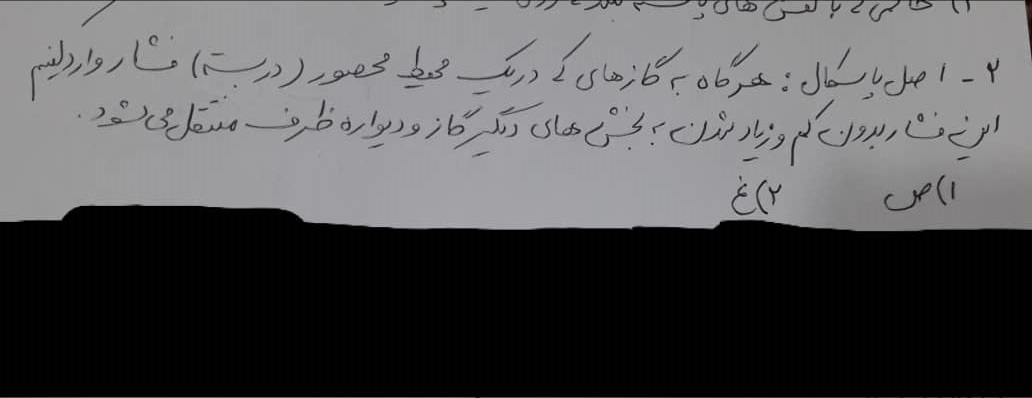 ۲ - اصل پاسکال : هرگاه به گازهای که در یک محیط محصور (دربسته) فشار وارد کنیم
این فشار بدون کم و زیاد شدن به بخش های دیگر گاز و دیواره ظرف منتقل می شود .
۱) ص ۲) غ